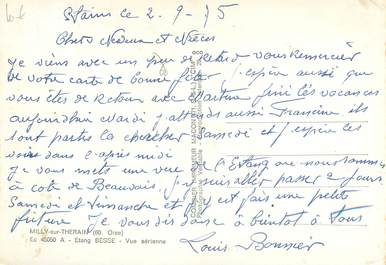 Blains le 2 - 9 - 75
Chers Neveux et Nièces
Je viens avec un peu de Retard vous Remercier
de votre carte de bonne fête j'espère aussi que
vous êtes de Retour avec fini les vacances
aujourd'hui mardi j'attends aussi Francine ils
sont partis la chercher Samedi et j'espère les
voir dans l'après midi
Je vous mets une vue de l'Etang ou nous sommes
à coté de Beauvais, je suis aller passer 2 Jours
Samedi et Dimanche et fait une petite
friture Je vous dis donc à bientôt à Tous
Louis Bonnier
MILLY-sur-THERAIN (60. Oise)
Ec 45050 A - Etang BESSE - Vue aérienne